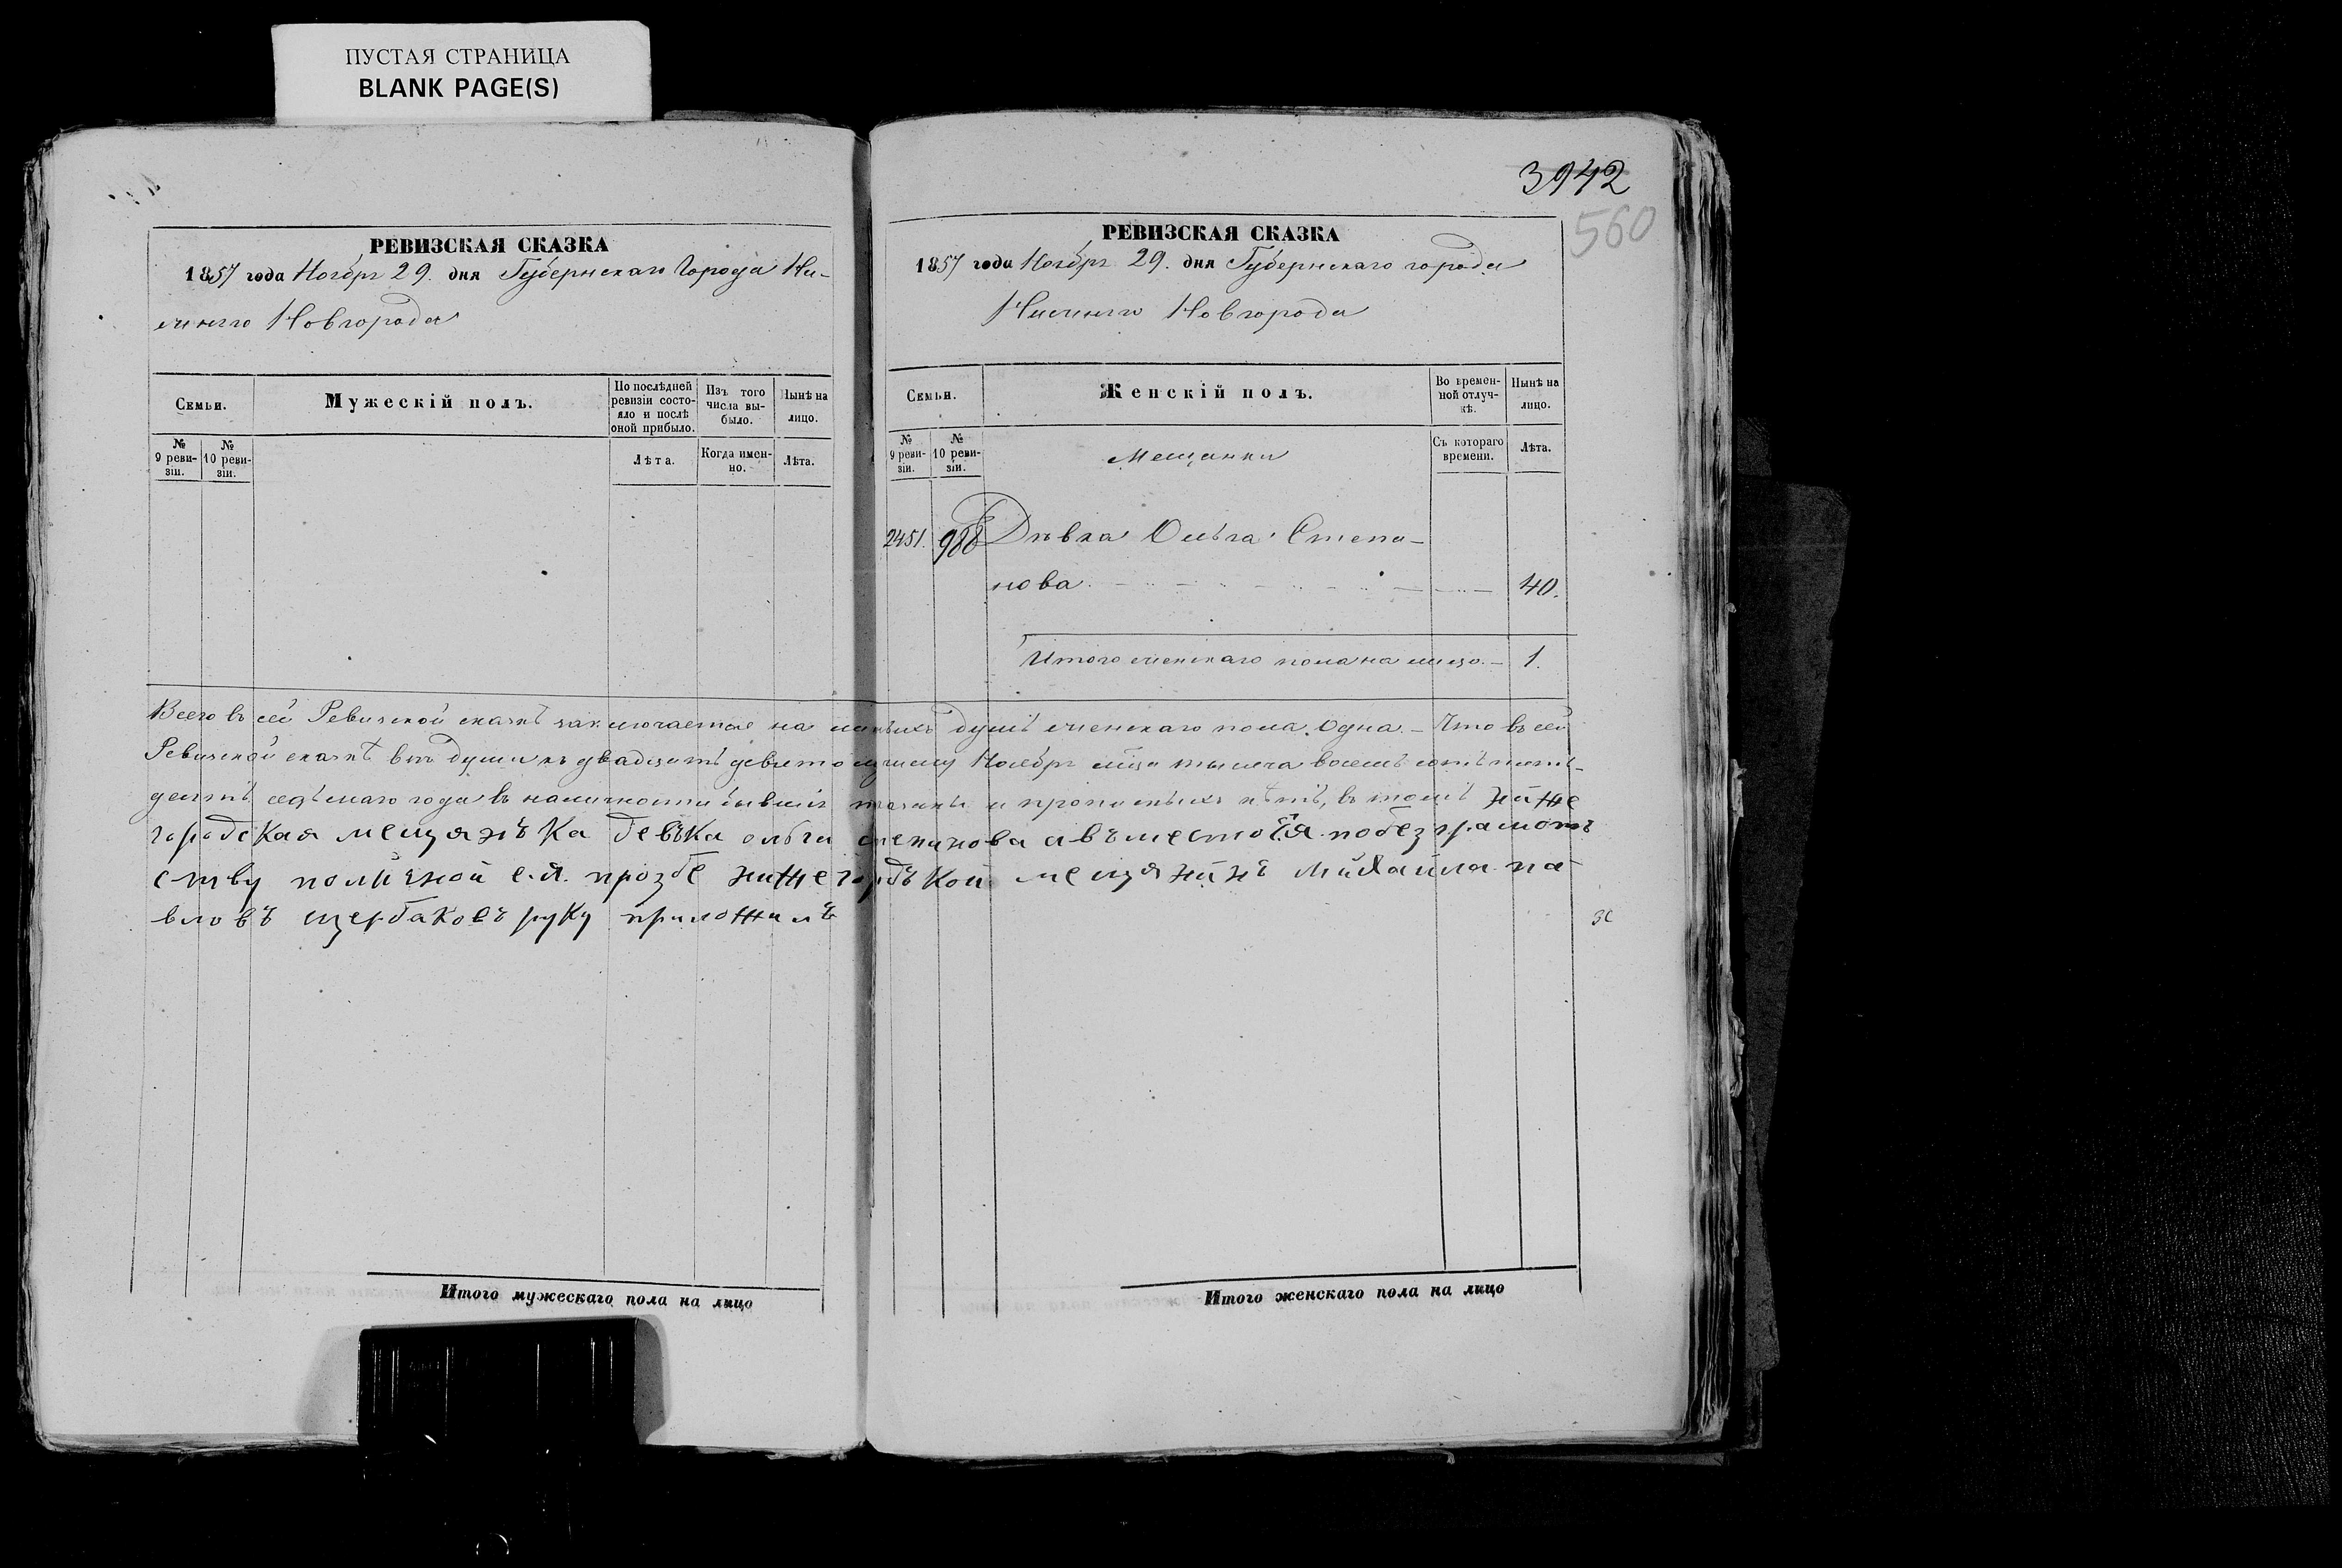 ПУСТАЯ СТРАНИЦА
BLANK PAGE(S)
РЕВИЗСКАЯ СКАЗКА
1857 года Ноября 29. дня Губернскаго Города Ни-
жняго Новгорода
Семьи.
Мужескій полъ.
По послѣдней ревизіи состо-яло и послѣ оной прибыло.
Изъ того числа вы-было.
Нынѣ на лицо.
№ 9 реви-зіи.
№ 10 реви-зіи.
Лѣта.
Когда имен-но.
Лѣта.
3942
560
РЕВИЗСКАЯ СКАЗКА
1857 года Ноября 29. дня Губернскаго города
Нижняго Новгорода
Семьи.
Женскій полъ.
Во времен-ной отлуч-кѣ.
Нынѣ на лицо.
№ 9 реви-зіи.
№ 10 реви-зіи.
Мещанки
Съ котораго времени.
Лѣта.
2451. 988 Дѣвка Ольга Степа-
нова 40.
Итого женскаго пола на лицо. – 1.
Всего въ сей Ревизской сказкѣ заключается на душъ женскаго пола Одна. – Что въ сей
Ревизской сказкѣ всѣ души къ двадцать девятому Ноября тысяча восемь сотъ пять-
десятъ седьмаго года въ наличности бывшія и прописныхъ нѣтъ, въ томъ ниже
городская мещянъка девъка ольга степанова а въместо ея по безграмотъ
ству поличной ея прозбе нижегородъкой мещянинъ михайла па
вловъ щербаковъ руку приложилъ
Итого мужескаго пола на лицо
Итого женскаго пола на лицо